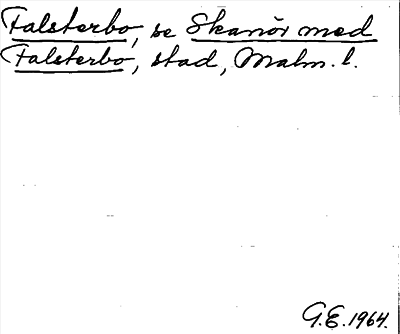 Falsterbo, se Skanör med
Falsterbo, stad, Malm. l.
G.E. 1964.